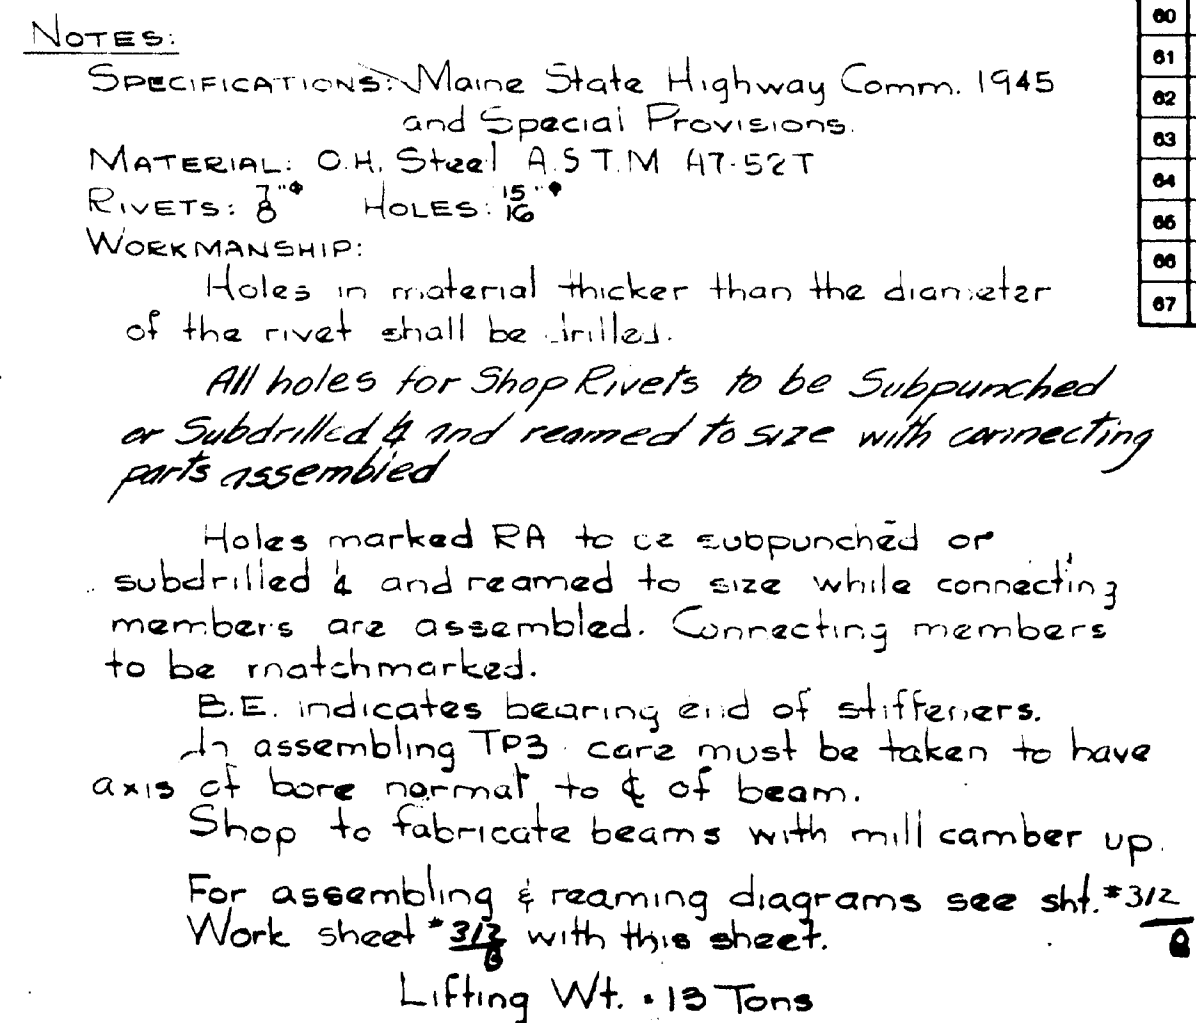 NOTES:
SPECIFICATIONS: Maine State Highway Comm. 1945
and Special Provisions.
MATERIAL: O.H. Steel A.S.T.M A7-52T
RIVETS: 7/8"ϕ HOLES: 15/16"ϕ
WORKMANSHIP:
Holes in material thicker than the diameter
of the rivet shall be drilled.
All holes for Shop Rivets to be Subpunched
or Subdrilled and reamed to size with connecting
parts assembled
Holes marked RA to be subpunched or
subdrilled and reamed to size while connecting
members are assembled. Connecting members
to be matchmarked.
B.E. indicates bearing end of stiffeners.
In assembling TP3 care must be taken to have
axis of bore normal to ℄ of beam.
Shop to fabricate beams with mill camber up.
For assembling & reaming diagrams see sht. #312
Work sheet #312 with this sheet.
Lifting Wt. = 13 Tons
60
61
62
63
64
65
66
67